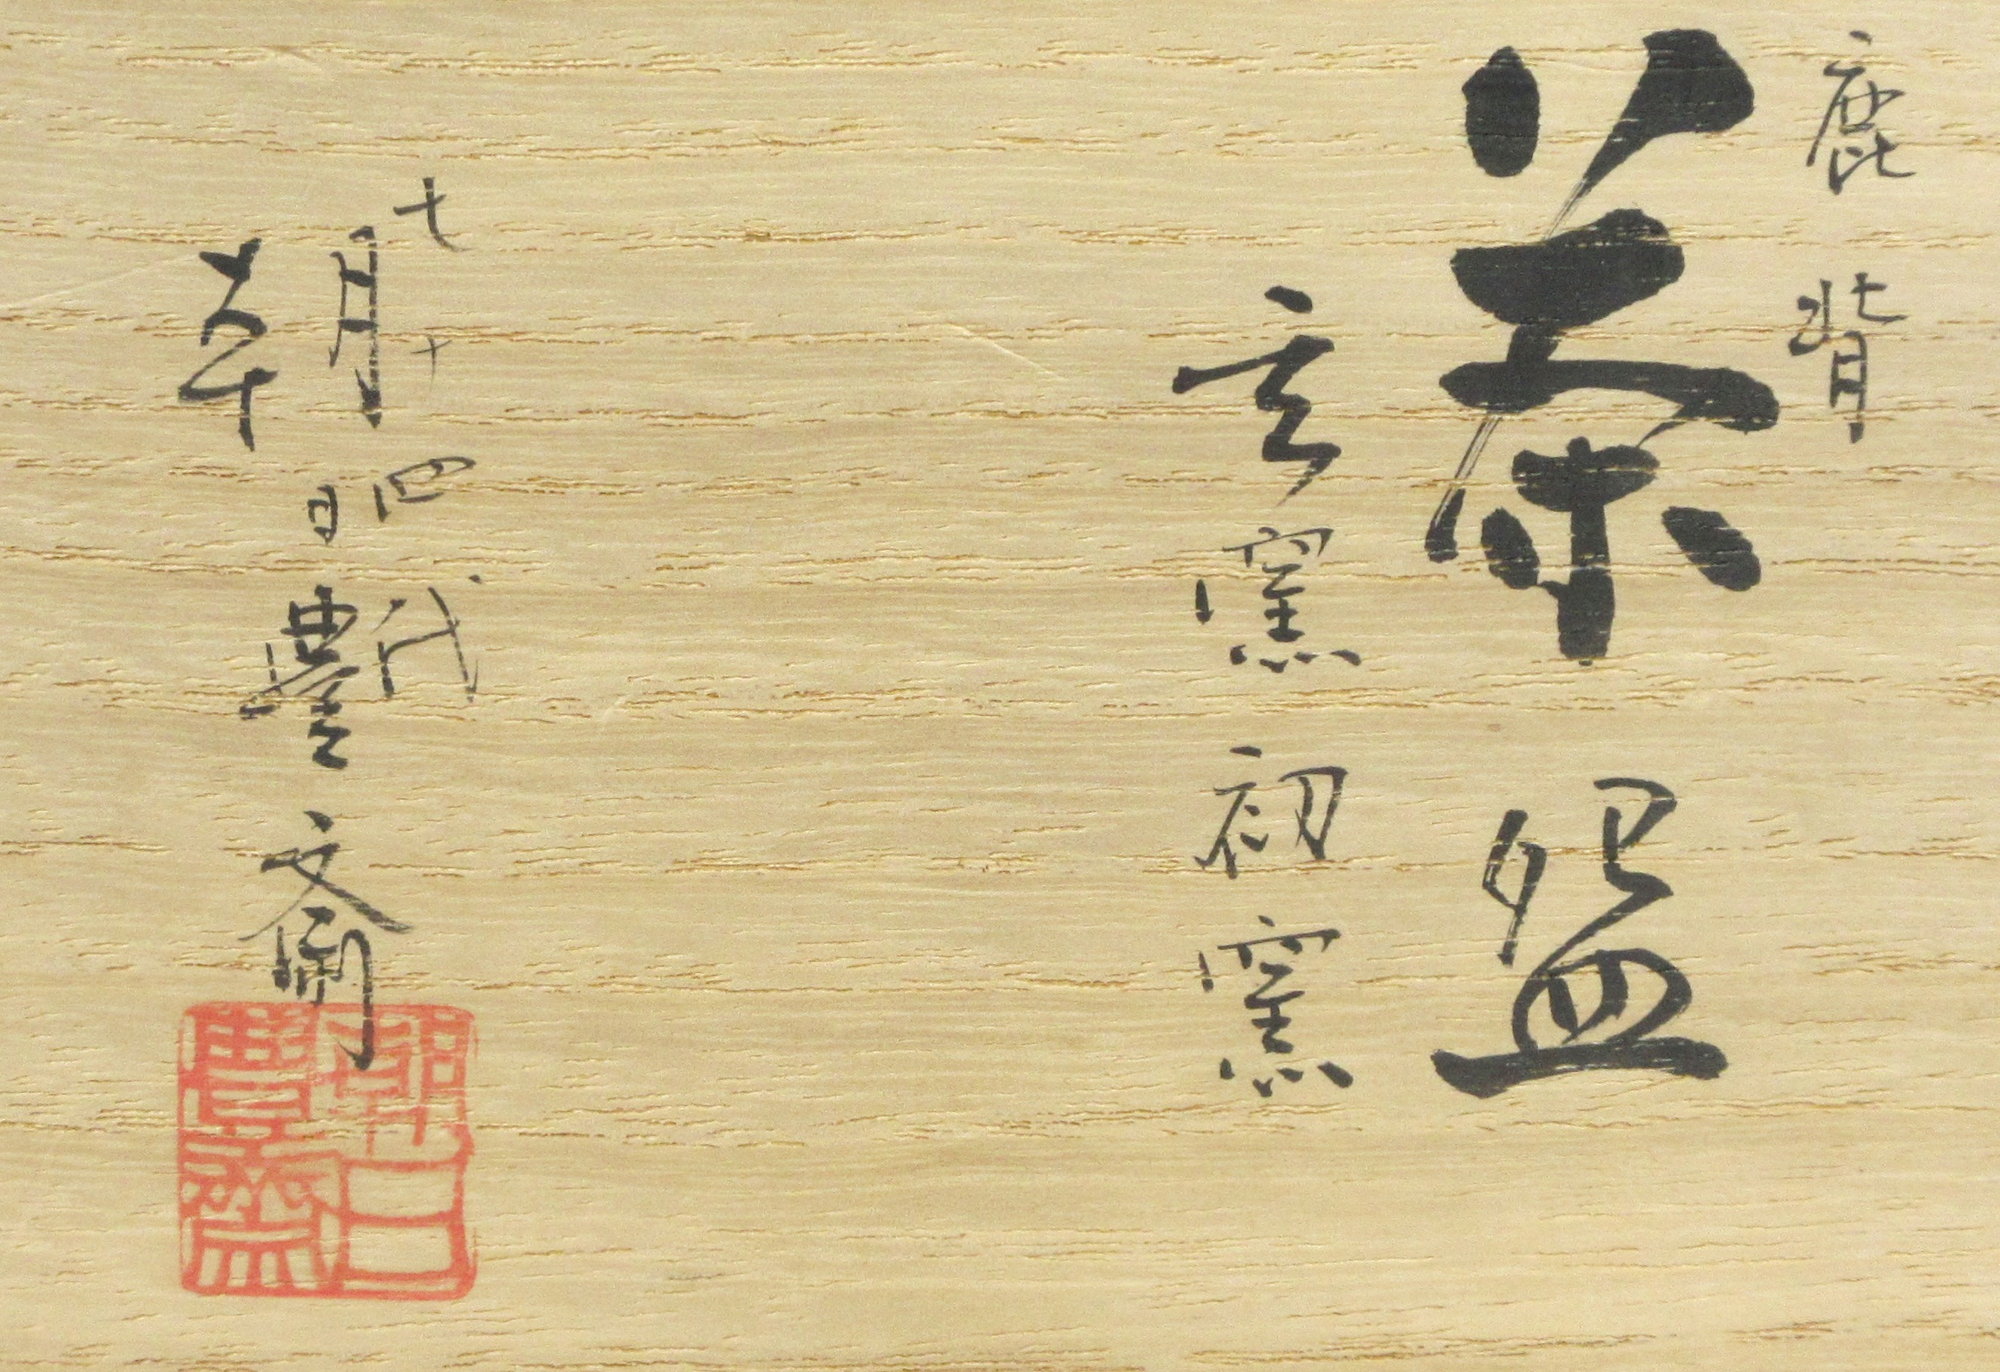 鹿背
茶盌
玄窯 初窯
七十四代
朝日豊斎
朝日
豊斎